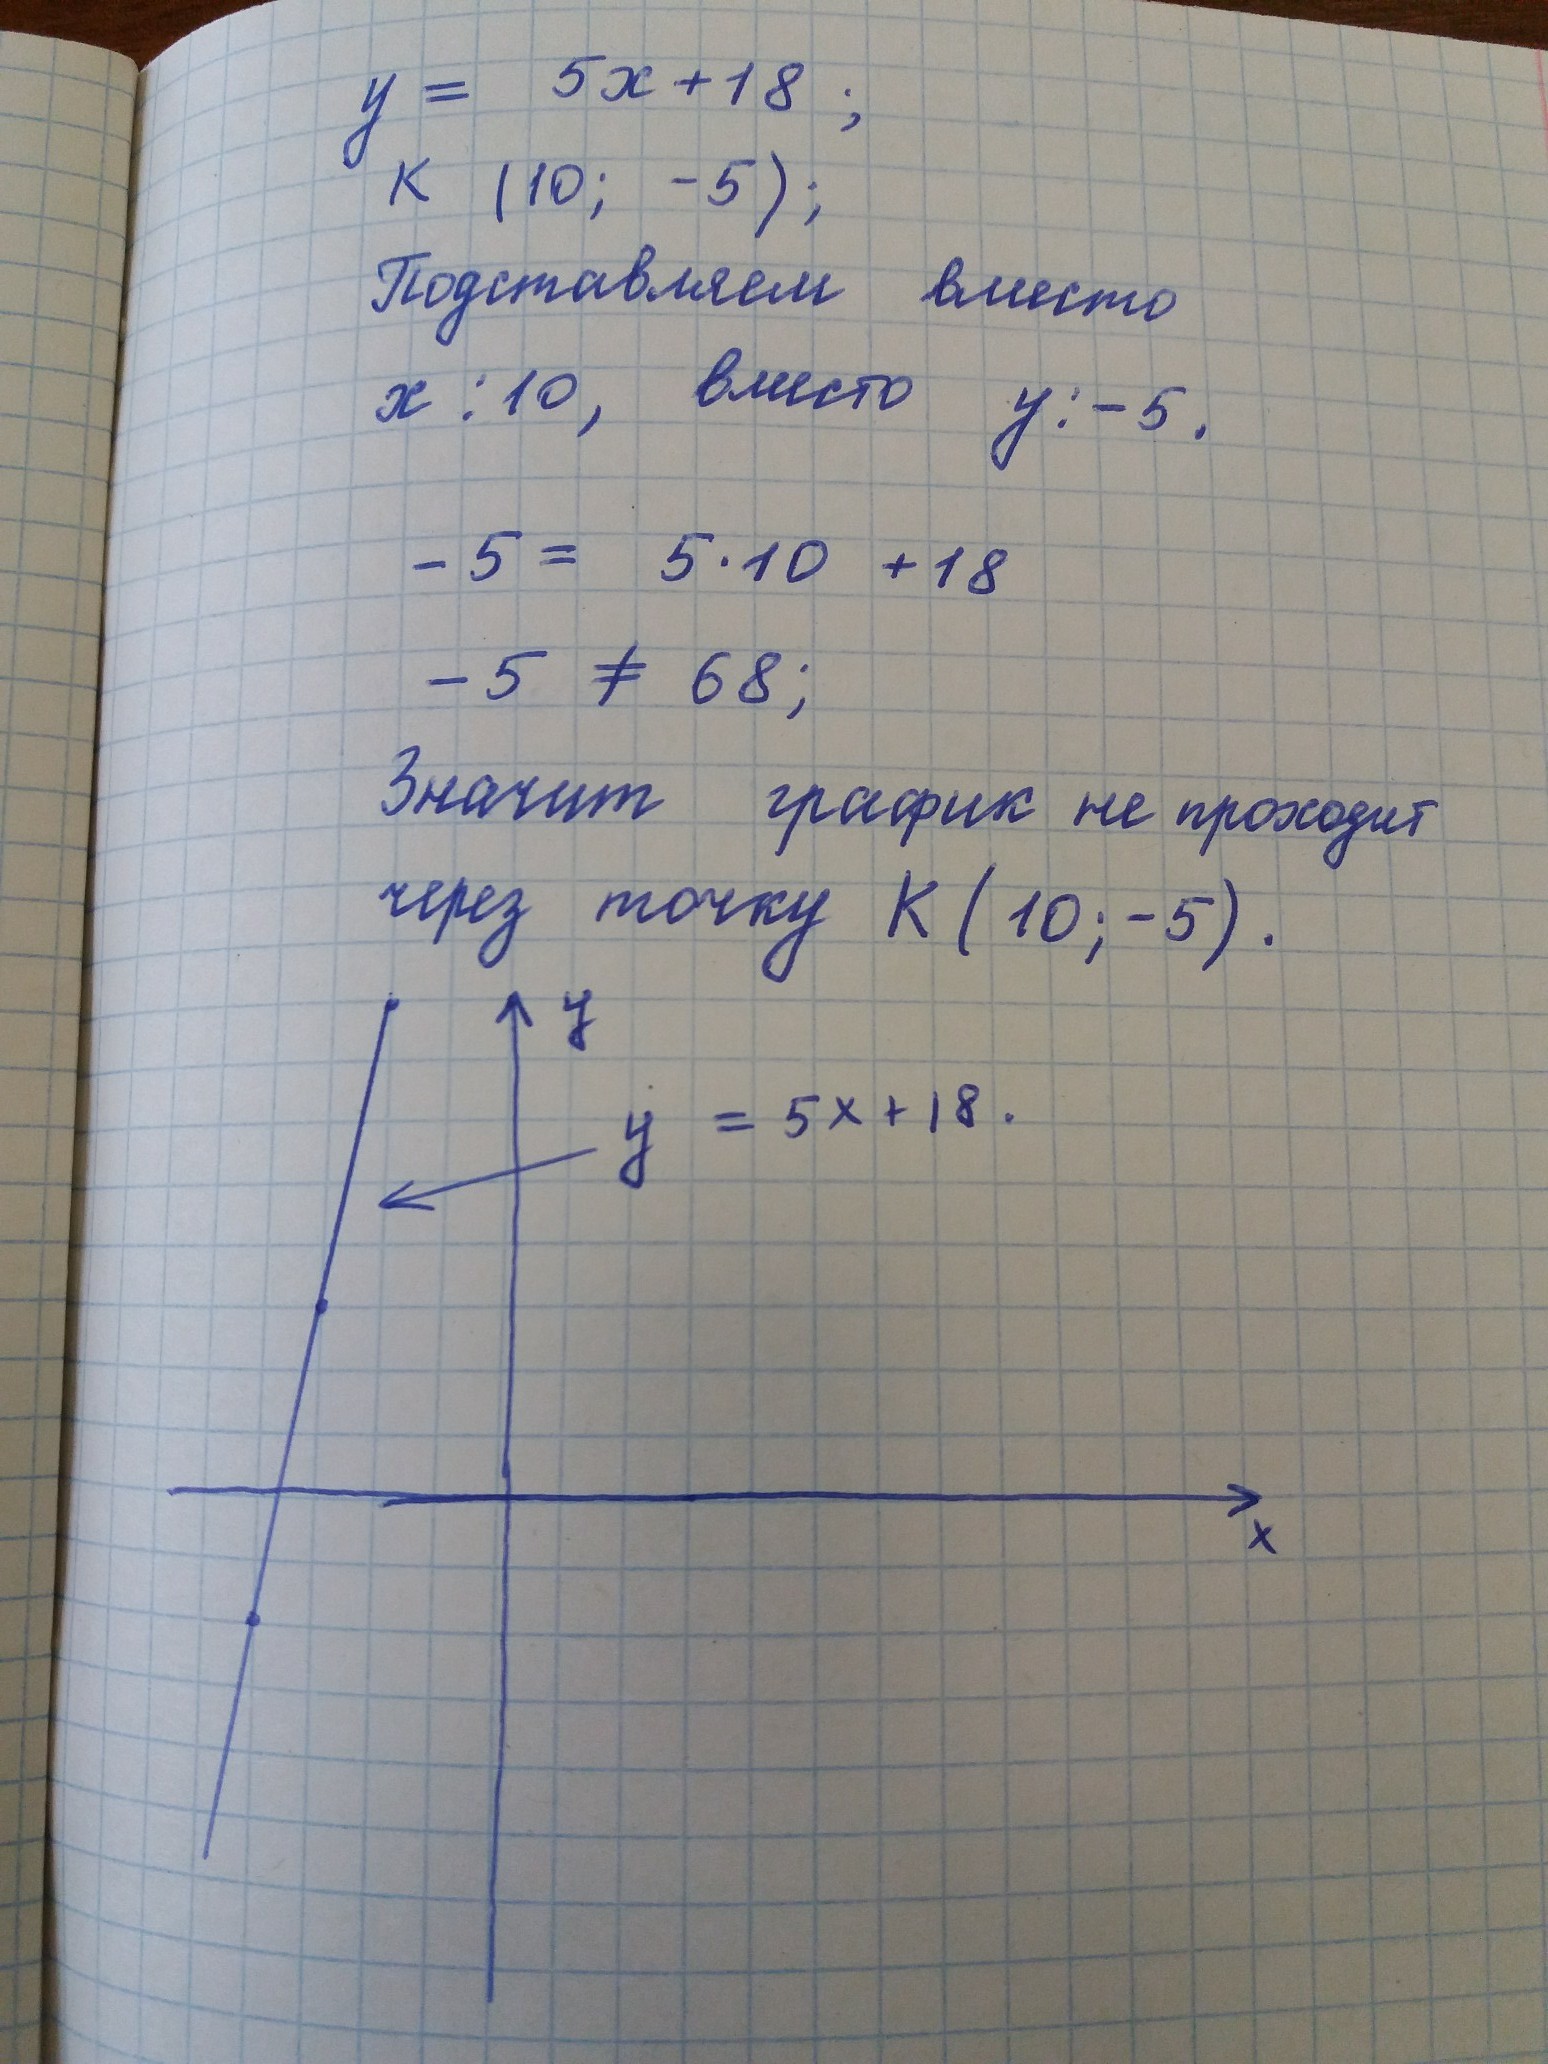 y = 5x+18;
K (10; -5);
Подставляем вместо
x:10, вместо y:-5.
-5= 5·10 +18
-5 ≠ 68;
Значит график не проходит
через точку K(10;-5).
y
y = 5x+18.
x